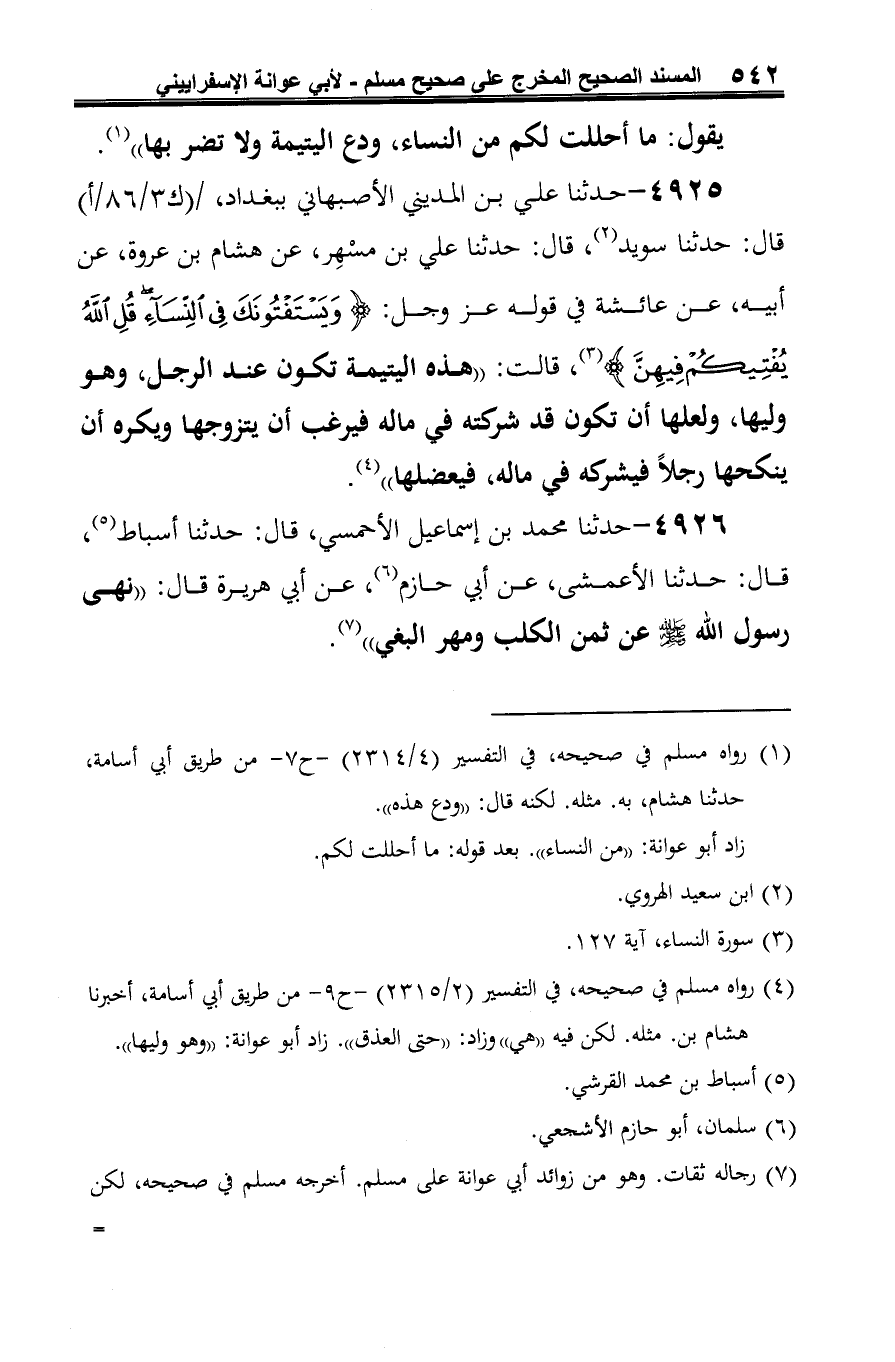 ٥٤٢ المسند الصحيح المخرج على صحيح مسلم - لأبي عوانة الإسفراييني
يقول: ما أحللت لكم من النساء، ودع اليتيمة ولا تضر بها))(١).
٤٩٢٥-حدثنا علي بن المديني الأصبهاني ببغداد، /(ك٨٦/٣/أ)
قال: حدثنا سويد(٢)، قال: حدثنا علي بن مسْهِر، عن هشام بن عروة، عن
أبيه، عن عائشة في قوله عز وجل: ﴿ وَيَسْتَفْتُونَكَ فِي ٱلنِّسَآءِۖ قُلِ ٱللَّهُ
يُفْتِيكُمْ فِيهِنَّ ﴾(٣)، قالت: ((هذه اليتيمة تكون عند الرجل، وهو
وليها، ولعلها أن تكون قد شركته في ماله فيرغب أن يتزوجها ويكره أن
ينكحها رجلاً فيشركه في ماله، فيعضلها))(٤).
٤٩٢٦-حدثنا محمد بن إسماعيل الأحمسي، قال: حدثنا أسباط(٥)،
قال: حدثنا الأعمشى، عن أبي حازم(٦)، عن أبي هريرة قال: ((نهى
رسول الله ﷺ عن ثمن الكلب ومهر البغي))(٧).
(١) رواه مسلم في صحيحه، في التفسير (٢٣١٤/٤) -ح٧- من طريق أبي أسامة،
حدثنا هشام، به. مثله. لكنه قال: ((ودع هذه)).
زاد أبو عوانة: ((من النساء)). بعد قوله: ما أحللت لكم.
(٢) ابن سعيد الهروي.
(٣) سورة النساء، آية ١٢٧.
(٤) رواه مسلم في صحيحه، في التفسير (٢٣١٥/٢) -ح٩- من طريق أبي أسامة، أخبرنا
هشام بن. مثله. لكن فيه ((هي)) وزاد: ((حتى العذق)). زاد أبو عوانة: ((وهو وليها)).
(٥) أسباط بن محمد القرشي.
(٦) سلمان، أبو حازم الأشجعي.
(٧) رجاله ثقات. وهو من زوائد أبي عوانة على مسلم. أخرجه مسلم في صحيحه، لكن
=